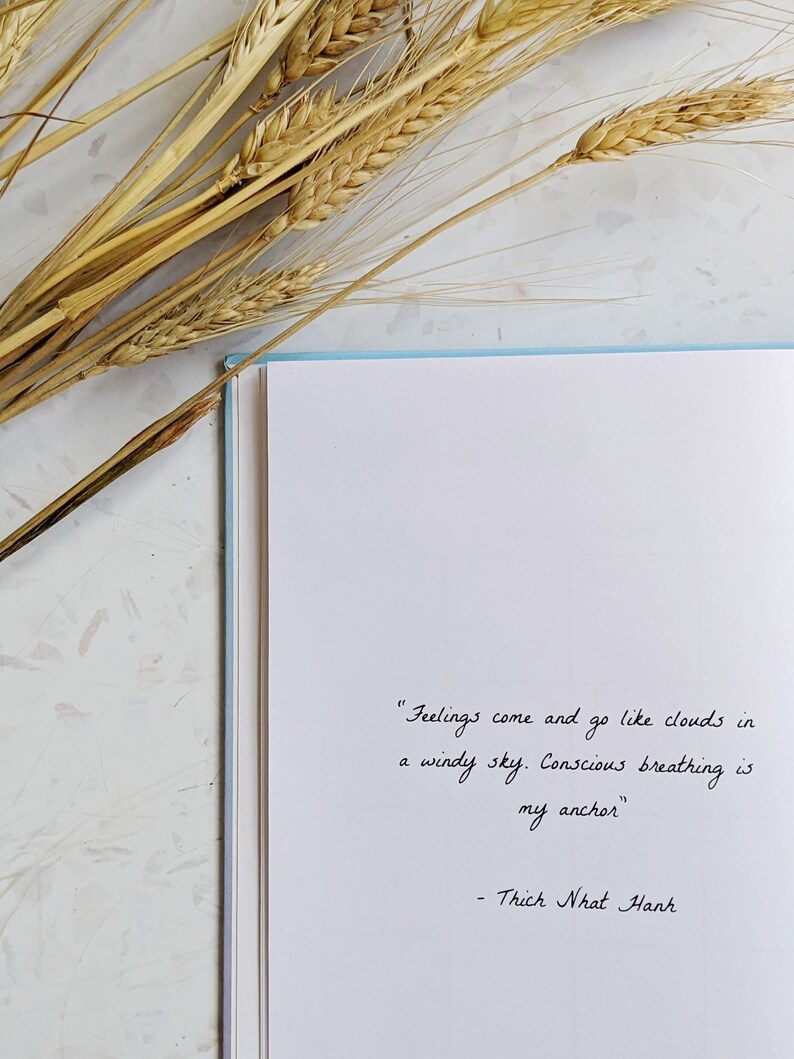 "Feelings come and go like clouds in
a windy sky. Conscious breathing is
my anchor"
- Thich Nhat Hanh